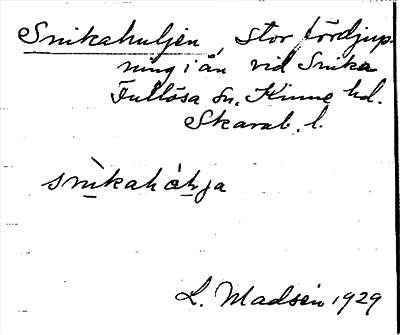 Snikahuljen, stor fördjup-
ning i ån vid Snika
Fullösa sn. Kinne hd.
Skarab. l.
snìkahòlja
L. Madsén 1929